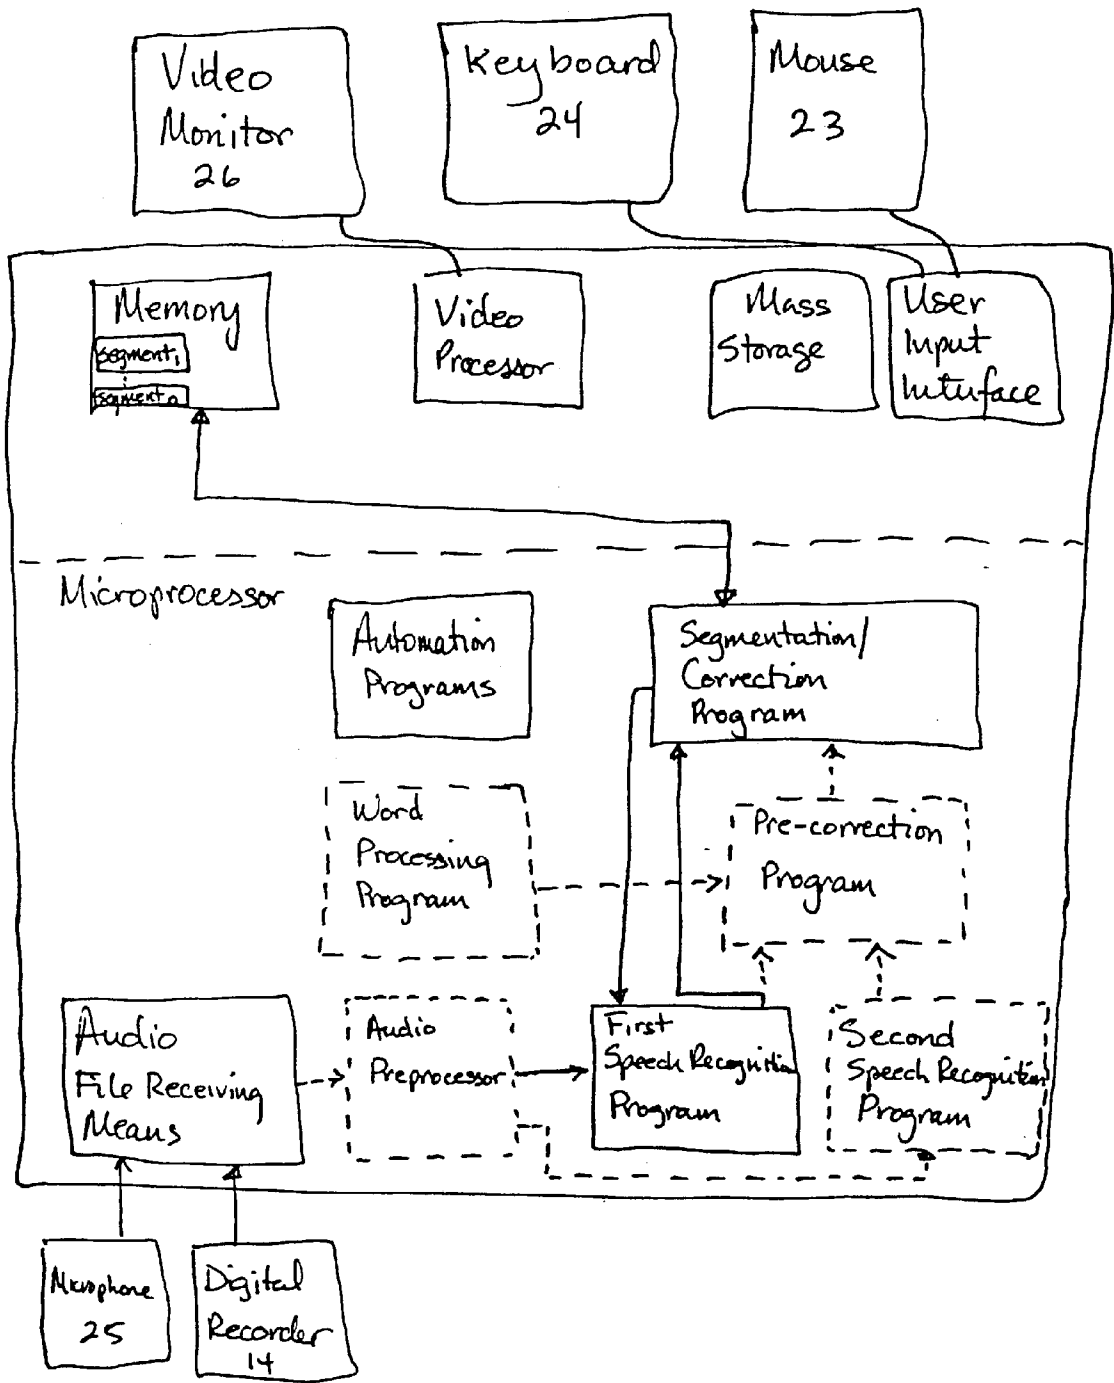 Video
Monitor
26
Keyboard
24
Mouse
23
Memory
segment1
segmentn
Video
Processor
Mass
Storage
User
Input
Interface
Microprocessor
Automation
Programs
Segmentation/
Correction
Program
Word
Processing
Program
Pre-correction
Program
Audio
File Receiving
Means
Audio
Preprocessor
First
Speech Recognition
Program
Second
Speech Recognition
Program
Microphone
25
Digital
Recorder
14